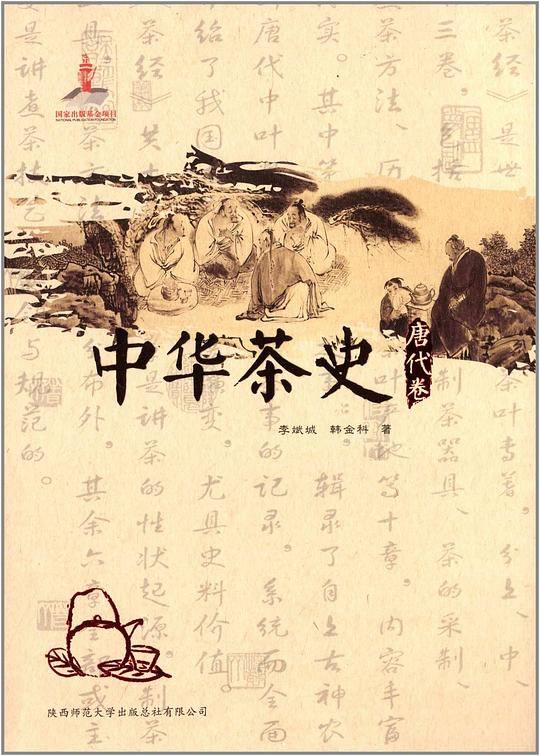 国家出版基金项目
NATIONAL PUBLICATION FOUNDATION
中华茶史
唐代卷
李斌城 韩金科 著
陕西师范大学出版总社有限公司
茶经》是世
茶叶专著。分上、中、
三卷。
制茶器具、茶的采制、
茶方法、历
地等十章。内容丰富
实。其中第
辑录了自上古神农
唐代中叶
事的记录。系统而全面
给了我国
变。尤具史料价值。
茶经》共
是讲茶的性状起源。制茶
布外。其余六章
是讲煮茶技艺
与规范的。